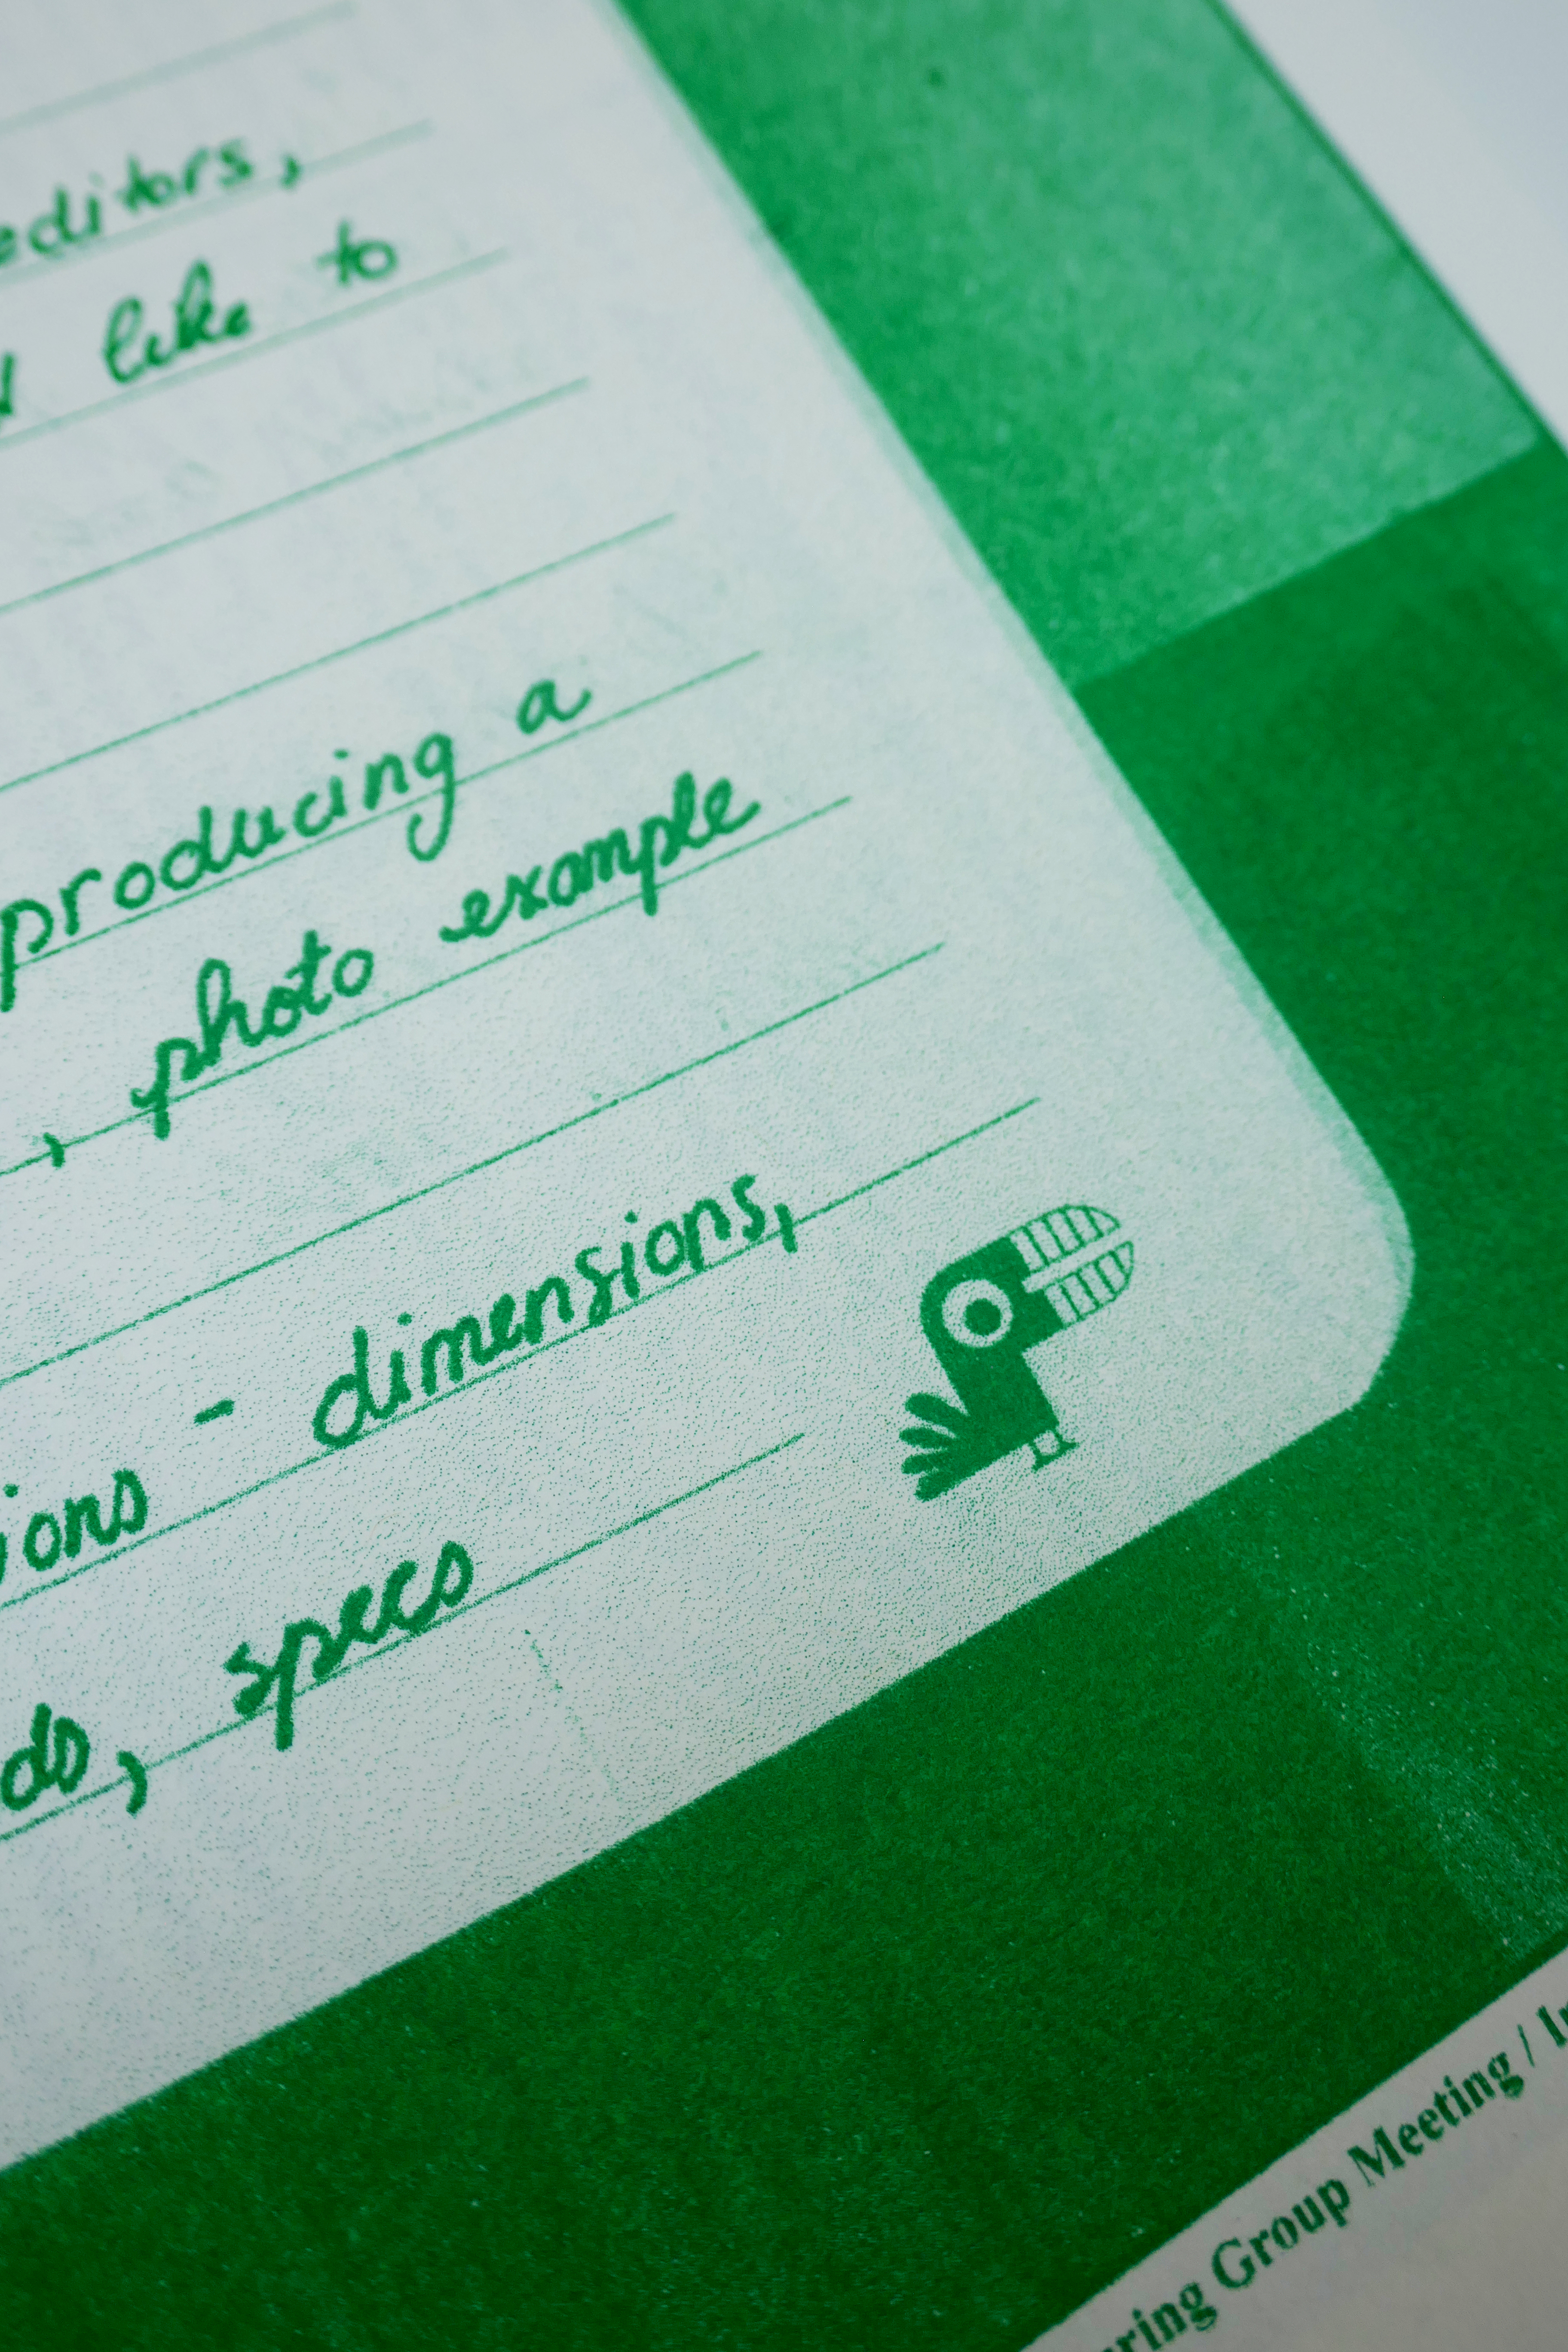 editors,
like to
producing a
, photo example
ions - dimensions,
ds, specs
ring Group Meeting /